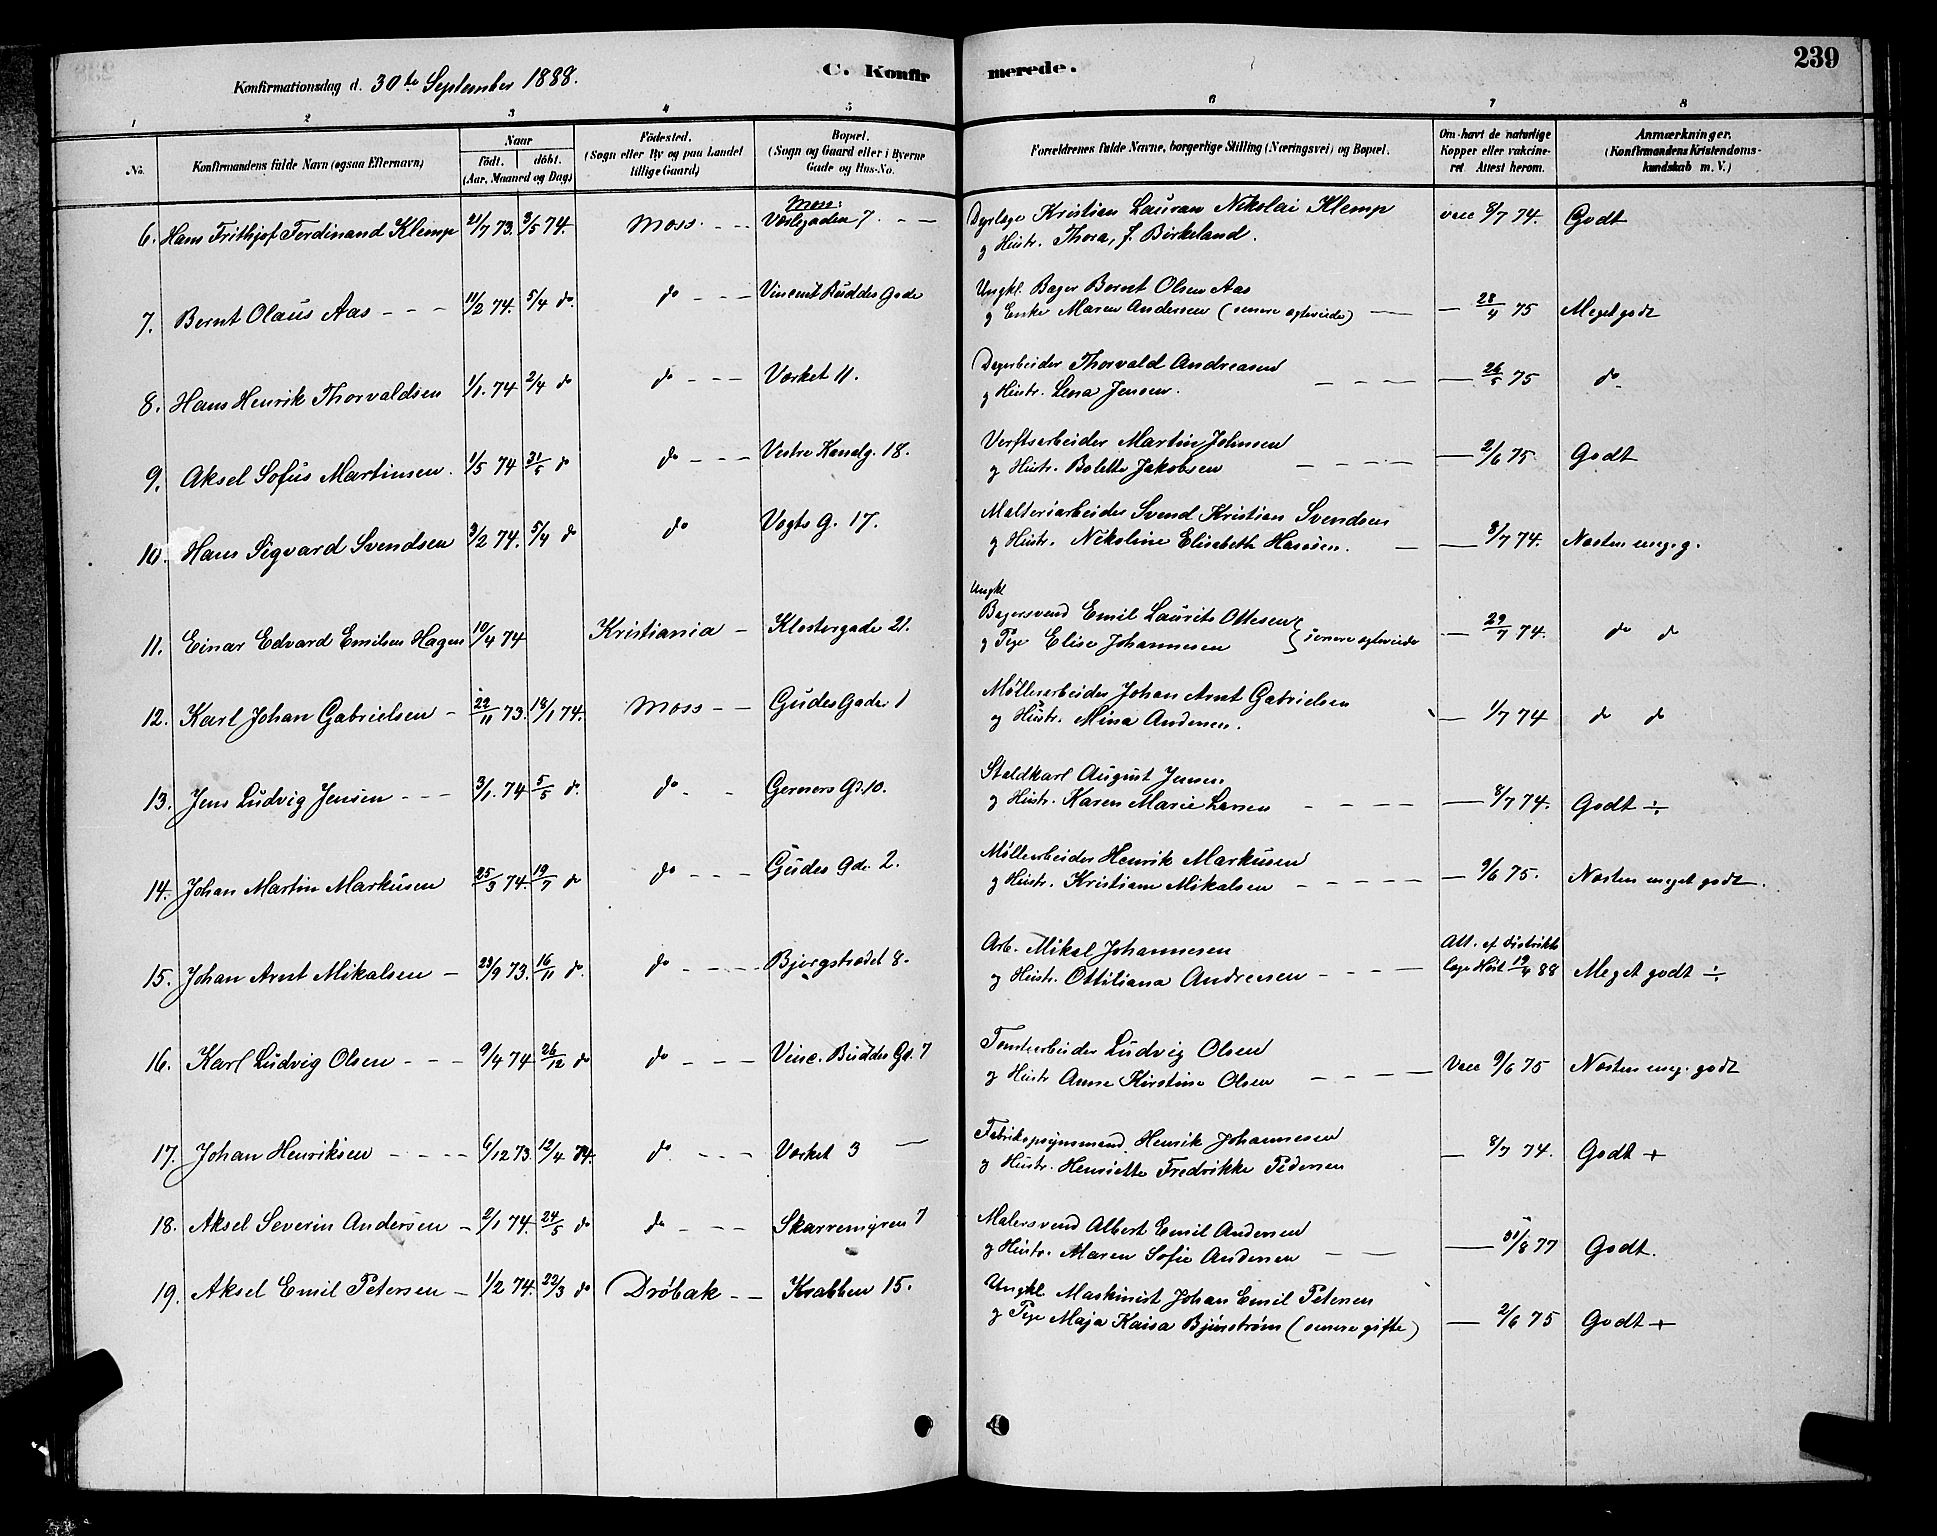 239
Konfirmationsdag d. 30te September 1888.
C. Konfirmerede.
1 2 3 4 5 6 7 8
No. Konfirmandens fulde Navn (ogsaa Efternavn) Naar født. døbt. (Aar, Maaned og Dag) Fødested. (Sogn eller By og paa Landet tillige Gaard) Bopæl. (Sogn og Gaard eller i Byerne Gade og Hus-No. Forældrenes fulde Navne, borgerlige Stilling (Næringsvei) og Bopæl. Om havt de naturlige Kopper eller vakcineret. Attest herom. Anmærkninger. (Konfirmandens Kristendomskundskab m. V.)
6. Hans Frithjof Ferdinand Klemp 21/7 73. 3/5 74. Moss Moss: 7 Dyrlæge Kristian Lauran Nikolai Klemp vacc 8/7 74. Godt
g Hustr. Thora, f. Birkeland.
7. Bernt Olaus Aas 11/2 74. 5/4 do. do Vincent Buddes Gade Ungkl. Bager Bernt Olsen Aas 28/4 75 Meget godt
g Enke Maren Andersen (senere egteviede)
8. Hans Henrik Thorvaldsen 1/1. 74 2/4 do do Værket 11. Thorvald Andreasen 26/5 75 do
g Hustr. Lena Jensen.
9. Aksel Sofus Martinsen. 1/5 74 31/5 do do Vestre Kanalg. 18. Verftsarbeider Martin Johnsen 2/6 75 Godt
g Hustr. Bolette Jakobsen
10. Hans Sigvard Svendsen 3/2 74. 5/4 do do Vogts G. 17. Malteriarbeider Svend Kristian Svendsen 8/7 74. Næsten meg. g.
g Hustr. Nikoline Elisabeth Hansen.
11. Einar Edvard Emilsen Hagen 10/4 74 Kristiania Klostergade 21. Ungkl Bagersvend Emil Laurits Ottesen 29/7 74. do do
g Pige Elise Johannesen senere egteviede
12. Karl Johan Gabrielsen 22/11 73. 18/1 74. Moss Gudes Gade 1 Møllerarbeider Johan Arnt Gabrielsen 1/7 74 do do
g Hustr. Mina Andersen.
13. Jens Ludvig Jensen 3/1. 74 5/5 do. do Gerners Gd. 10. Staldkarl August Jensen 8/7 74. Godt ÷
g Hustr. Karen Marie Larsen
14. Johan Martin Markusen 25/3 74. 19/7 do do Gudes Gde. 2. Møllearbeider Henrik Markusen 9/6 75. Næsten meget godt.
g Hustr. Kristiane Mikalsen
15. Johan Arnt Mikalsen 23/9 73. 16/11 do. do Bjergstrædet 8. Arb. Mikal Johannesen Att. af Distrikts
g Hustr. Ottiliana Andresen læge Høst 19/4 88 Meget godt ÷
16. Karl Ludvig Olsen 9/4 74 26/12 do do Vinc. Buddes Gd. 7 Tomtearbeider Ludvig Olsen Vacc 9/6 75 Næsten meg. godt
g Hustr Anne Kirstine Olsen
17. Johan Henriksen 6/12 73. 12/4 74. do Værket 3 Henrik Johannesen 8/7 74. Godt +
g Hustr. Henriette Fredrikke Pedersen
18. Aksel Severin Andersen 2/1 74. 24/5 do do Skarremyren 7 Malersvend Albert Emil Andersen 31/8 77 Godt.
g Hustr. Maren Sofie Andersen
19. Aksel Emil Petersen 1/2 74. 22/3 do Drøbak Krabben 15. Ungkl Maskinist Johan Emil Petersen
g Pige Maja Kaisa Bjurstrøm (senere gifte) 2/6 75 Godt +